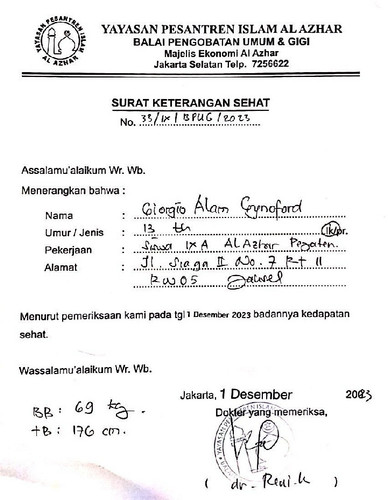 YAYASAN PESANTREN ISLAM AL AZHAR
BALAI PENGOBATAN UMUM & GIGI
Majelis Ekonomi Al Azhar
Jakarta Selatan Telp. 7256622
YAYASAN PESANTREN ISLAM
AL AZHAR
SURAT KETERANGAN SEHAT
No. 33/IX/BPUG/2023
Assalamu'alaikum Wr. Wb.
Menerangkan bahwa :
Nama : Giorgio Alam
Umur / Jenis : 13 th lk/pr.
Pekerjaan : Siswa IX A Al Azhar
Alamat : Jl. Siaga II No. 7 Rt 11
RW 05 Jaksel
Menurut pemeriksaan kami pada tgl 1 Desember 2023 badannya kedapatan
sehat.
Wassalamu'alaikum Wr. Wb.
Jakarta, 1 Desember 2023
BB : 69 kg.
TB : 176 cm.
Dokter yang memeriksa,
( dr. Reni.k )